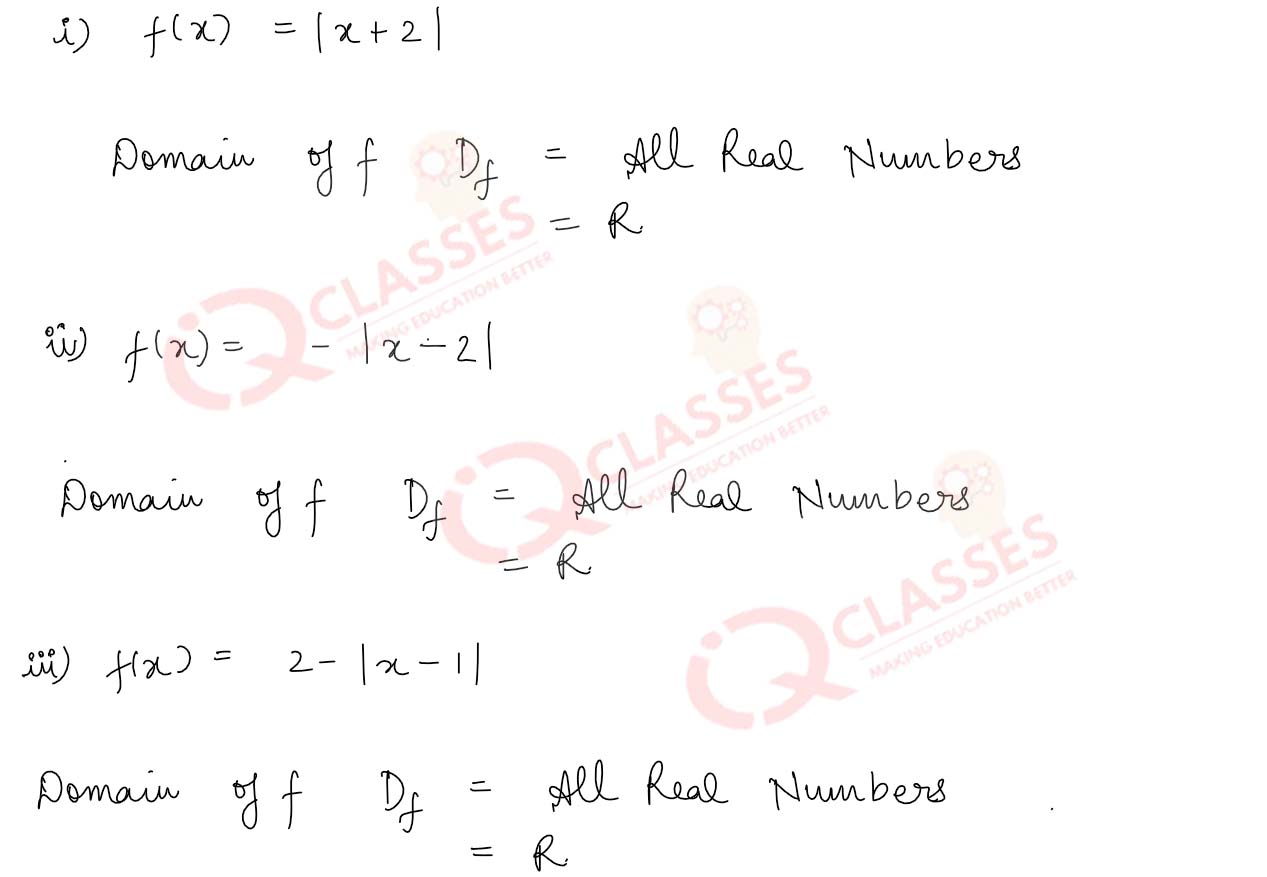 i) f(x) = |x+2|
Domain of f D_f = All Real Numbers
= R
ii) f(x) = - |x-2|
Domain of f D_f = All Real Numbers
= R
iii) f(x) = 2-|x-1|
Domain of f D_f = All Real Numbers
= R
iQ CLASSES
MAKING EDUCATION BETTER
iQ CLASSES
MAKING EDUCATION BETTER
iQ CLASSES
MAKING EDUCATION BETTER